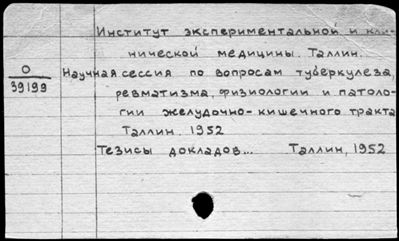 Институт экспериментальной и кли-
нической медицины. Таллин.
О
39199
Научная сессия по вопросам туберкулеза,
ревматизма, физиологии и патоло-
гии желудочно-кишечного тракта
Таллин. 1952
Тезисы докладов... Таллин, 1952